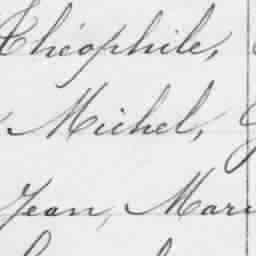 Théophile,
Michel,
Jean, Mari